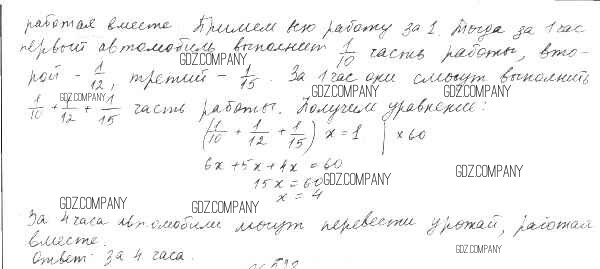 работая вместе. Примем всю работу за 1. Тогда за 1 час
первый автомобиль выполнит 1/10 часть работы, вто-
рой - 1/12, третий - 1/15. За 1 час они смогут выполнить
1/10 + 1/12 + 1/15 часть работы. Получим уравнение:
(1/10 + 1/12 + 1/15) x = 1 | x 60
6x + 5x + 4x = 60
15x = 60
x = 4
За 4 часа автомобили могут перевести урожай, работая
вместе.
Ответ: за 4 часа.
GDZ.COMPANY
GDZ.COMPANY
GDZ.COMPANY
GDZ.COMPANY
GDZ.COMPANY
GDZ.COMPANY
GDZ.COMPANY
GDZ.COMPANY
GDZ.COMPANY